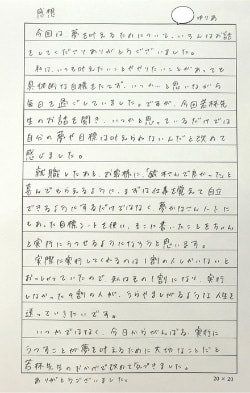 感想
ゆりあ
今回は、夢を叶えるためについて、いろんなお話
をしてくださりありがとうございました。
私は、いつも叶えたいことややりたいことがあっても
具体的な目標をたてず、いつかと思いながら
毎日を過ごしていました。ですが、今回若林先
生のお話を聞き、いつかと思っているだけでは
自分の夢や目標は叶えられないんだと改めて
感じました。
就職したあと、お客様に、「 さんで良かった」と
喜んでもらえるように、まずは仕事を覚えて自立
できるようにするだけではなく、夢かなえノートに
もあった目標シートを使い、そこに書いたことをちゃん
と実行にうつせるようになろうと思います。
実際に実行してくれるのは1割の人しかいないと
おっしゃっていたので、私はその1割になり、実行
しなかった9割の人が、うらやましがるような人生を
送っていきたいです。
いつかではなく、今日からがんばる、実行に
うつすことが夢を叶えるために大切なことだと
若林先生のおかげで改めて気づきました。
ありがとうございました。
20×20